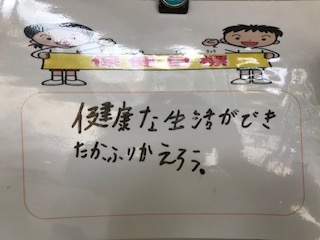 健康な生活ができ
たか、ふりかえろう。